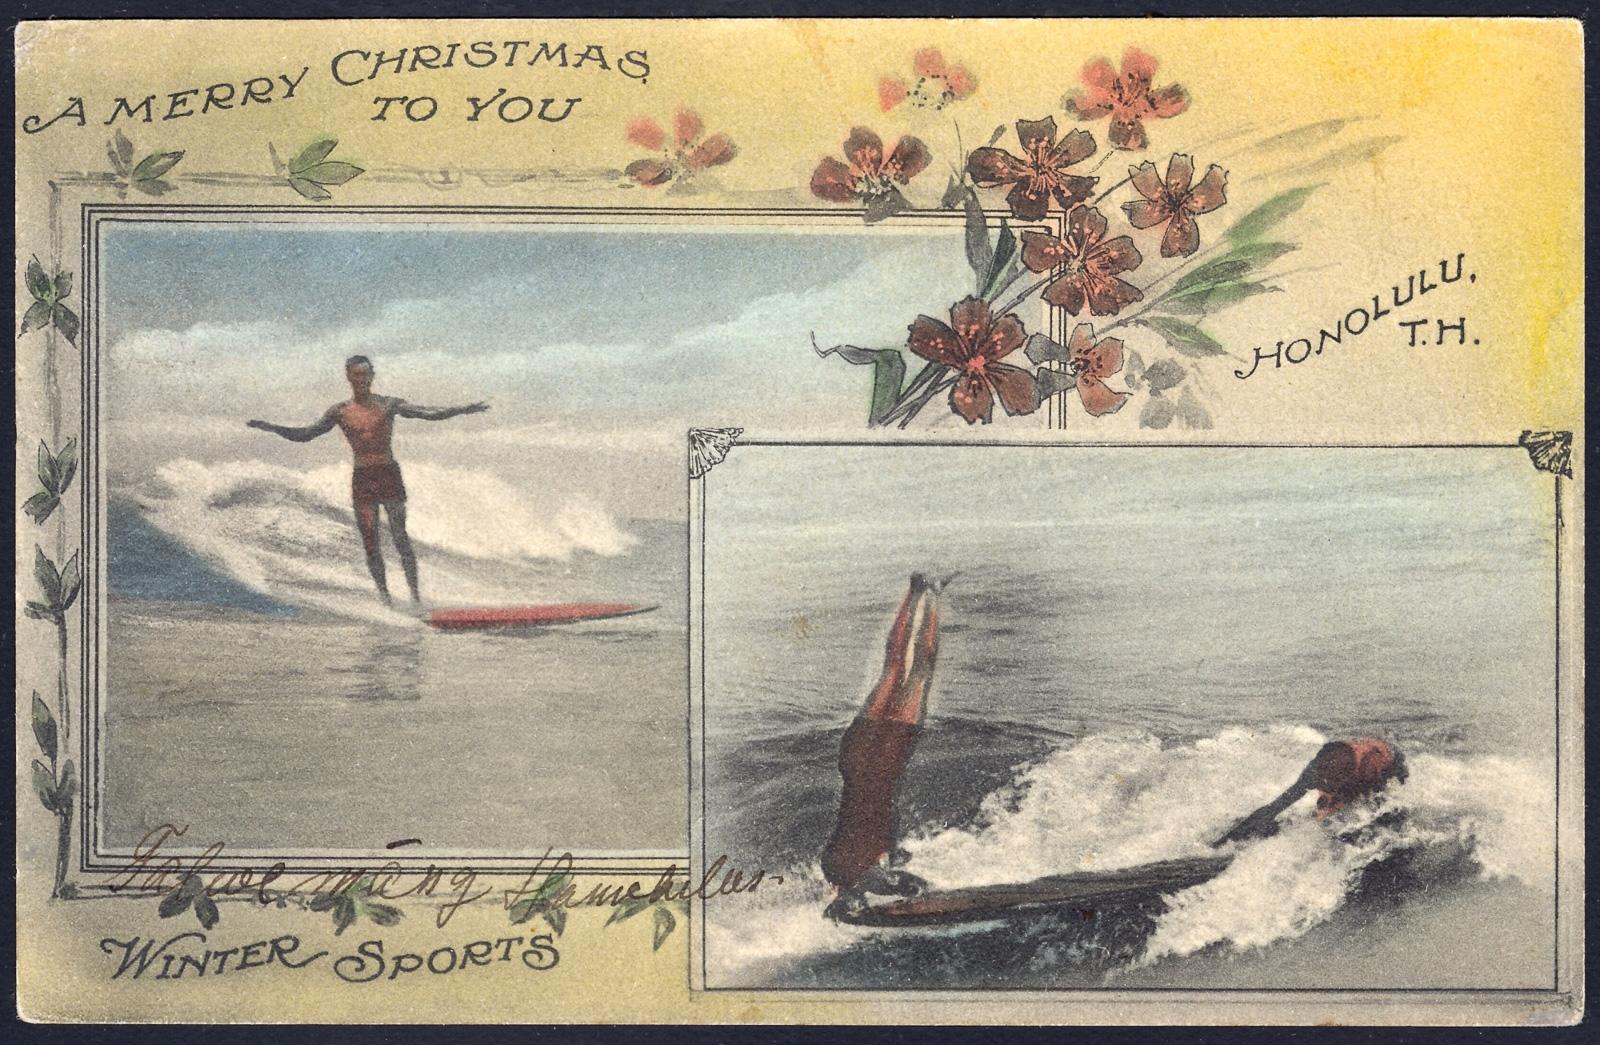 A MERRY CHRISTMAS
TO YOU
HONOLULU,
T.H.
WINTER SPORTS